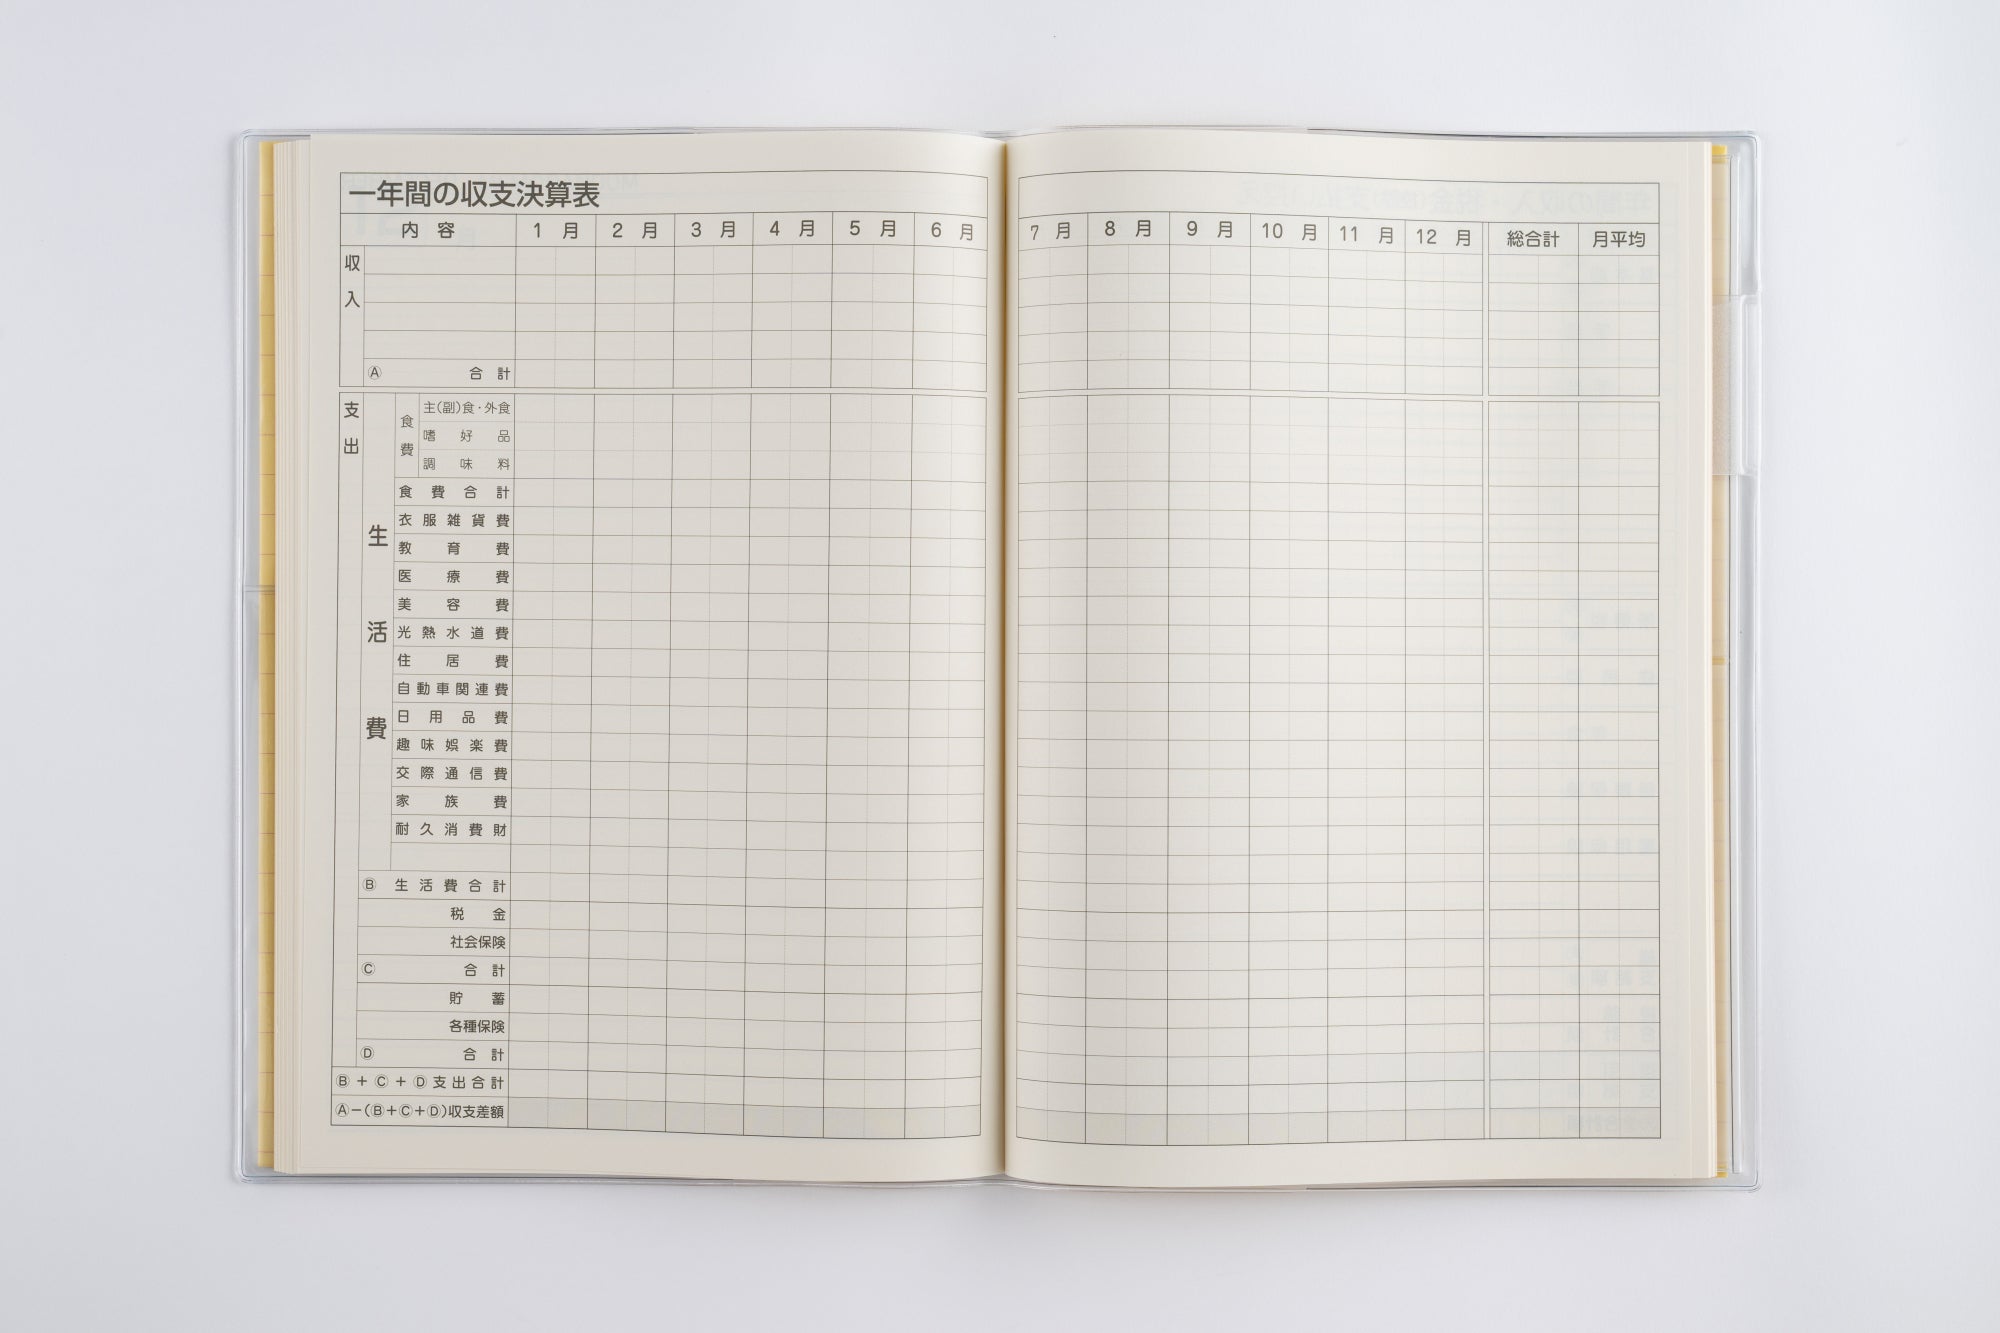 一年間の収支決算表
内容 1月 2月 3月 4月 5月 6月 7月 8月 9月 10月 11月 12月 総合計 月平均
収入
Ⓐ 合計
支出
生活費
食費
主(副)食・外食
嗜好品
調味料
食費合計
衣服雑貨費
教育費
医療費
美容費
光熱水道費
住居費
自動車関連費
日用品費
趣味娯楽費
交際通信費
家族費
耐久消費財
Ⓑ 生活費合計
税金
社会保険
Ⓒ 合計
貯蓄
各種保険
Ⓓ 合計
Ⓑ+Ⓒ+Ⓓ支出合計
Ⓐ−(Ⓑ+Ⓒ+Ⓓ)収支差額